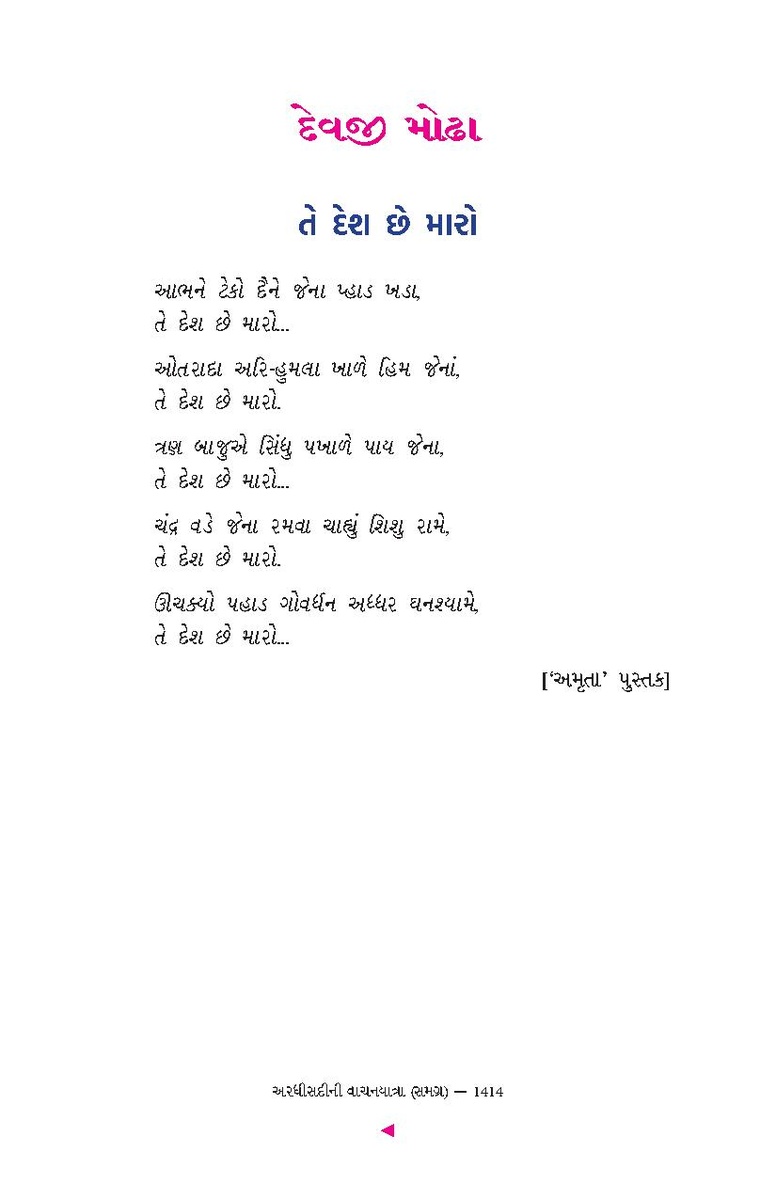 દેવજી મોઢા
તે દેશ છે મારો
આભને ટેકો દૈને જેના પ્હાડ ખડા,
તે દેશ છે મારો...
ઓતરાદા અરિ-હુમલા ખાળે હિમ જેનાં,
તે દેશ છે મારો.
ત્રણ બાજુએ સિંધુ પખાળે પાય જેના,
તે દેશ છે મારો...
ચંદ્ર વડે જેના રમવા ચાહ્યું શિશુ રામે,
તે દેશ છે મારો.
ઊચક્યો પહાડ ગોવર્ધન અધ્ધર ઘનશ્યામે,
તે દેશ છે મારો...
[‘અમૃતા’ પુસ્તક]
અરધીસદીની વાચનયાત્રા (સમગ્ર) — 1414